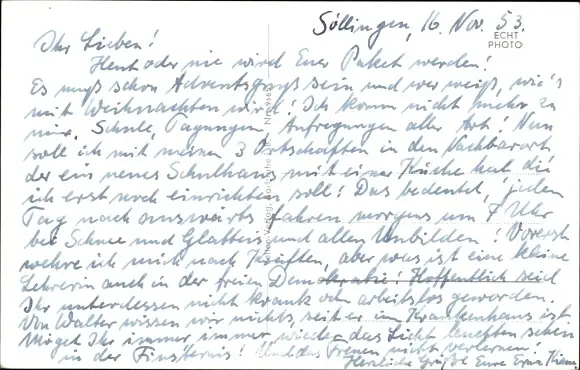 Söllingen, 16. Nov. 53.
ECHT
PHOTO
Ihr Lieben!
Heut oder nie wird Euer Paket werden!
Es muß schon Adventsgruß sein und wer weiß, wie's
mit Weihnachten wird! Ich komm nicht mehr zu
mir. Schule, Tagungen, Aufregungen aller Art! Nun
soll ich mit meinen 3 Ortschaften in den Nachbarort
der ein neues Schulhaus mit einer Küche hat die
ich erst noch einrichten soll! Das bedeutet, jeden
Tag nach auswärts fahren morgens um 7 Uhr
bei Schnee und Glatteis und allen Unbilden! Vorerst
wehre ich mich nach Kräften, aber was ist eine kleine
Lehrerin auch in der freien Demokratie! Hoffentlich seid
Ihr unterdessen nicht krank oder arbeitslos geworden.
Von Walter wissen wir nichts, seit er im Krankenhaus ist.
Möget Ihr immer, immer wieder das Licht leuchten sehen
in der Finsternis! Und das Freuen nicht verlernen!
Herzliche Grüße Eure Erna